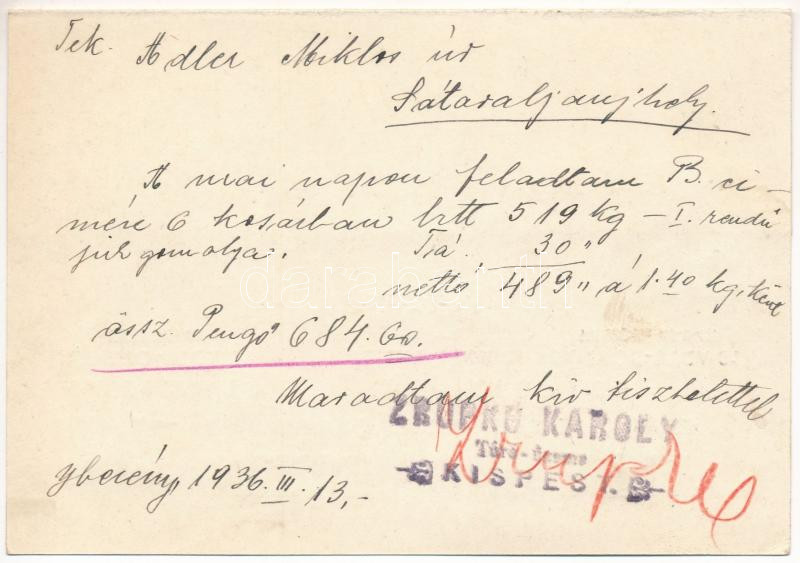 Tek. Adler Miklos úr
Sátaraljaujhely.
A mai napon feladtam B. ci-
mére 6 kosárban brtt 519 Kg – I. rendü
juh gomolya. Tiá. 30 "
nettó 489 " á 1.40 kg, ként
össz. Pengő 684.60.
Maradtam kiv tisztelettel
ZRUPKO KAROLY
Túró-
KISPEST.
yberény, 1936. III. 13,-
darabanth